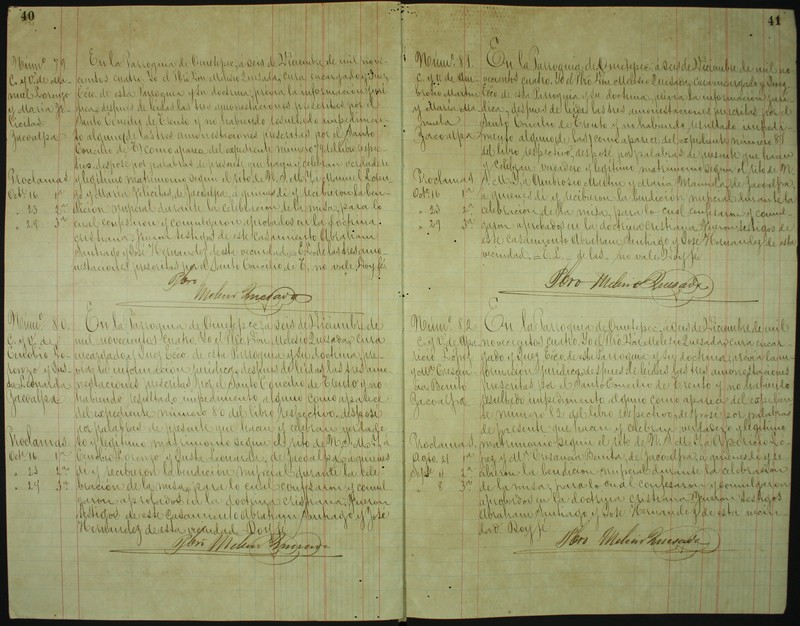 40
Núm.º 79
C. y V. de Ma-
nuel Lorenzo
y María Fe-
licitas
Jacoalpa
Proclamas
Octe. 16 1ª
" 23 2ª
" 29 3ª
En la Parroquia de Ometepec, a seis de Diciembre de mil nove-
cientos cuatro. Yo el Pbro Don Melesio Quesada, Cura encargado y Juez
Ecco. de esta Parroquia y su doctrina, previa la información jurí-
dica, después de leídas las tres amonestaciones prescritas por el
Santo Concilio de Trento y no habiendo resultado impedimen-
to alguno
como aparece del expediente número 79 del libro respec-
tivo, desposé por palabras de presente que hacen y celebran verdadero
y legítimo matrimonio según el rito de N. S. M. Y. a Manuel Loren-
zo y María Felicitas, de Jacoalpa, a quienes dí y recibieron la ben-
dición nupcial durante la celebración de la misa, para lo
cual confesaron y comulgaron aprobados en la doctrina
cristiana, fueron testigos de este casamiento Abraham
Santiago y José Hernandez de esta vecindad.
no vale. Doy fé.
Pbro Melesio Quesada
Núm.º 80
C. y V. de
Emidio Lo-
renzo y Jus-
ta Leonarda
Jacoalpa
Proclamas
Octe. 16 1ª
" 23 2ª
" 29 3ª
En la Parroquia de Ometepec, a seis de Diciembre de
mil novecientos cuatro. Yo el Pbro Don Melesio Quesada, Cura
encargado y Juez Ecco. de esta Parroquia y su doctrina, pre-
via la información jurídica, después de leídas las tres amo-
nestaciones prescritas por el Santo Concilio de Trento y no
habiendo resultado impedimento alguno como aparece
del expediente número 80 del libro respectivo, desposé
por palabras de presente que hacen y celebran verdade-
ro y legítimo matrimonio según el rito de N. S. M. Y. a
Emidio Lorenzo y Justa Leonarda, de Jacoalpa, a quienes
dí y recibieron la bendición nupcial durante la cele-
bración de la misa, para lo cual confesaron y comul-
garon aprobados en la doctrina cristiana, fueron
testigos de este casamiento Abraham Santiago y José
Hernandez de esta vecindad. Doy fé.
Pbro Melesio Quesada
41
Núm.º 81
C. y V. de Am-
brosio Martin
y María Ma-
nuela
Jacoalpa
Proclamas
Octe. 16 1ª
" 23 2ª
" 29 3ª
En la Parroquia de Ometepec, a seis de Diciembre de mil no-
vecientos cuatro. Yo el Pbro Don Melesio Quesada, Cura encargado y Juez
Ecco. de esta Parroquia y su doctrina, previa la información jurí-
dica, después de leídas las tres amonestaciones prescritas por el
Santo Concilio de Trento y no habiendo resultado impedi-
mento alguno como aparece del expediente número 81
del libro respectivo, desposé por palabras de presente que hacen
y celebran verdadero y legítimo matrimonio según el rito de N.
S. M. Y. a Ambrosio Martin y María Manuela, de Jacoalpa,
a quienes dí y recibieron la bendición nupcial durante la
celebración de la misa, para lo cual confesaron y comul-
garon aprobados en la doctrina cristiana, fueron testigos de
este casamiento Abraham Santiago y José Hernandez de esta
vecindad. no vale. Doy fé.
Pbro Melesio Quesada
Núm.º 82
C. y V. de Apa-
ricio Lopez
y Mª Crescen-
cia Benita
Jacoalpa
Proclamas
Agto. 21 1ª
Sepe. 4 2ª
" 8 3ª
En la Parroquia de Ometepec, a seis de Diciembre de mil
novecientos cuatro. Yo el Pbro Don Melesio Quesada, Cura encar-
gado y Juez Ecco. de esta Parroquia y su doctrina, previa la in-
formación jurídica, después de leídas las tres amonestaciones
prescritas por el Santo Concilio de Trento y no habiendo
resultado impedimento alguno como aparece del expedien-
te número 82 del libro respectivo, desposé por palabras
de presente que hacen y celebran verdadero y legítimo
matrimonio según el rito de N. S. M. Y. a Aparicio Lo-
pez y Mª Crescencia Benita, de Jacoalpa, a quienes dí y re-
cibieron la bendición nupcial durante la celebración
de la misa, para lo cual confesaron y comulgaron
aprobados en la doctrina cristiana, fueron testigos
Abraham Santiago y José Hernandez de esta vecin-
dad. Doy fé.
Pbro Melesio Quesada